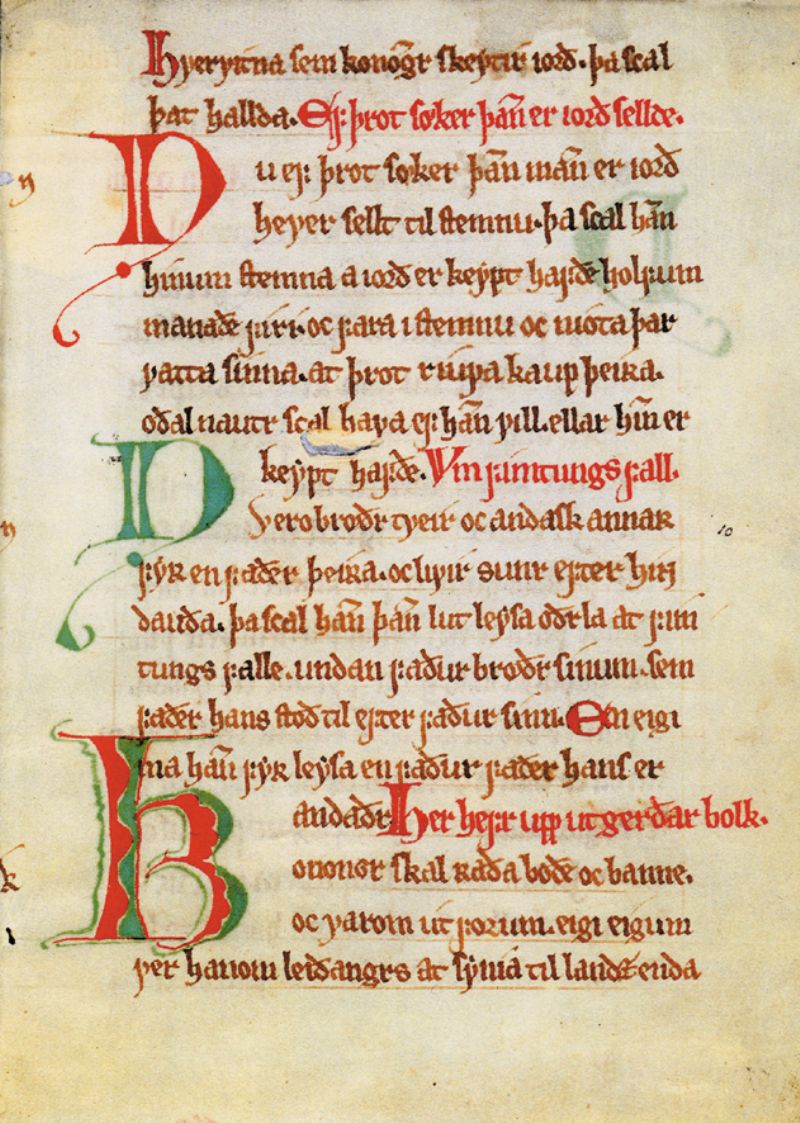 hyervitna sem konongr skeytir iorð. þa scal
þat hallda. Ef þrot søker þan̄ er iorð sellde.
Nu ef þrot søker þan̄ man̄ er iorð
hever sellt til stemnu. þa scal han̄
hinum stemna a iorð er keypt hafðe holfum
manaðe firi. oc fara i stemnu oc niota þar
vatta sinna. at þrot riufa kaup þeira.
oðal nautr scal hava ef han̄ vill. ellar hin̄ er
keypt hafðe. Um fimtungs fall.
Nu ero brøðr tveir oc andask annar
fyʀ en faðer þeira. oc livir sunr efter hin
dauða. þa scal han̄ þan̄ lut leysa oðrla at fim
tungs falle. undan faður brøðr sinum. sem
faðer hans stoð til efter faður sinn. En eigi
ma han̄ fyʀ leysa en faður faðer hans er
andaðr. Her hefr upp utgerðar bolk.
Kononor skal raða boðe oc banne.
oc varom ut forum. eigi eigum
ver hanom leiðangrs at synia til landzenda